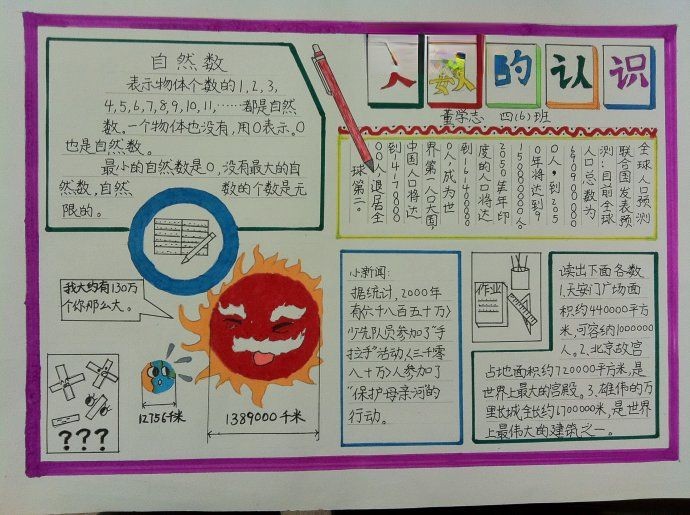 人数的认识
董学志 四(6)班
自然数
表示物体个数的1,2,3,
4,5,6,7,8,9,10,11,……都是自然
数。一个物体也没有,用0表示。0
也是自然数。
最小的自然数是0,没有最大的自
然数,自然 数的个数是无
限的。
全球人口预测
联合国发表预
测:目前全球
人口总数为
64090000
0人。到205
0年将达到9
15000000人。
2050年年印
度的人口将达
到1640000
0人,成为世
界第一人口大国
中国人口将达
到1470000
00人,退居全
球第二。
我大约有130万
个你那么大。
12756千米
1389000千米
???
小新闻:
据统计,2000年
有(六十八百五十万)
少先队员参加了"手
拉手"活动,(三千零
八十万)人参加了
"保护母亲河的"
行动。
作业
读出下面各数
1.天安门广场面
积约440000平方
米,可容纳1000000
人。2.北京故宫
占地面积约720000平方米,是
世界上最大的宫殿。3.雄伟的万
里长城全长约6700000米,是世界
上最伟大的建筑之一。